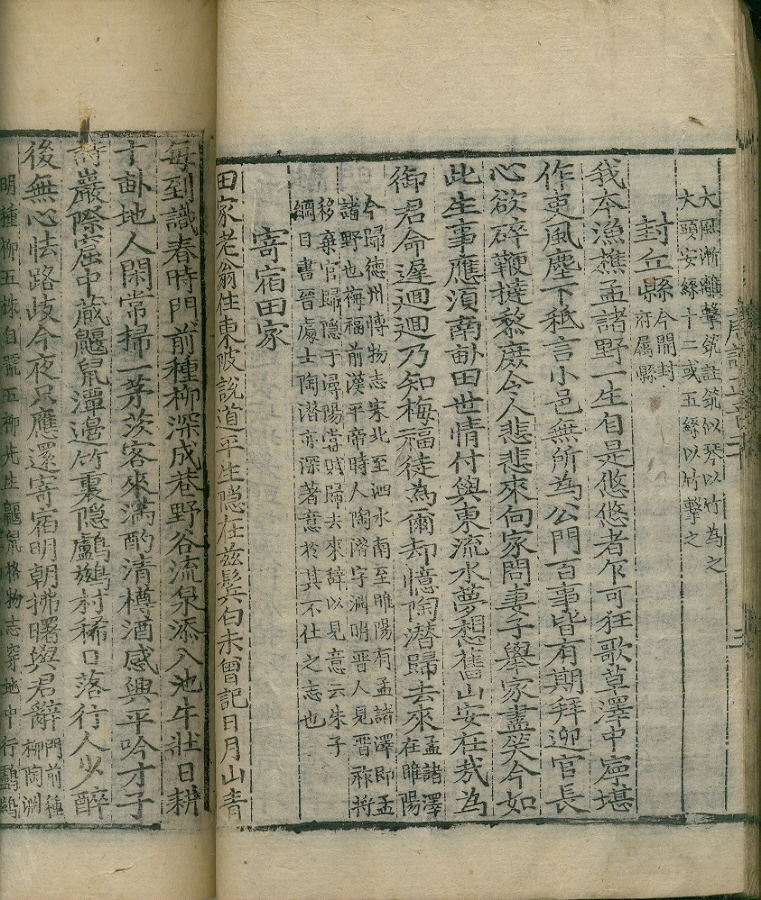 大風漸離擊筑註筑似琴以竹為之
大頭安絃十二或五絃以竹擊之
封丘縣 今開封府屬縣
我本漁樵孟諸野一生自是悠悠者乍可狂歌草澤中寧堪
作吏風塵下秪言小邑無所為公門百事皆有期拜迎官長
心欲碎鞭撻黎庶令人悲悲來向家問妻子舉家盡笑今如
此生事應湏南畝田世情付與東流水夢想舊山安在㢤為
御君命遲迴迴乃知梅福徒為爾却憶陶潜歸去來 孟諸澤在睢陽
今歸德州博物志宋北至泗水南至睢陽有孟諸澤即孟
諸野也梅福前漢平帝時人陶潜字淵明晋人見晋祚將
移棄官歸隱于潯陽當賦歸去來辭以見意云朱子
綱目書晉處士陶潜亦深著意於其不仕之志也
寄宿田家
田家老翁住東陂說道平生隠在玆鬂白未曾記日月山青
每到識春時門前種柳深成巷野谷流泉添入池牛壯日耕
十畝地人閑常掃一茅茨客來滿酌清樽酒感興平吟才子
詩巖際窟中藏鼴鼠潭邊竹裏隠鸕鷀村稀日落行人少醉
後無心怯路歧今夜只應還寄宿明朝拂曙與君辭 門前種柳陶淵
明種柳五株自號五柳先生鼴鼠格物志穿地中行鸕鷀